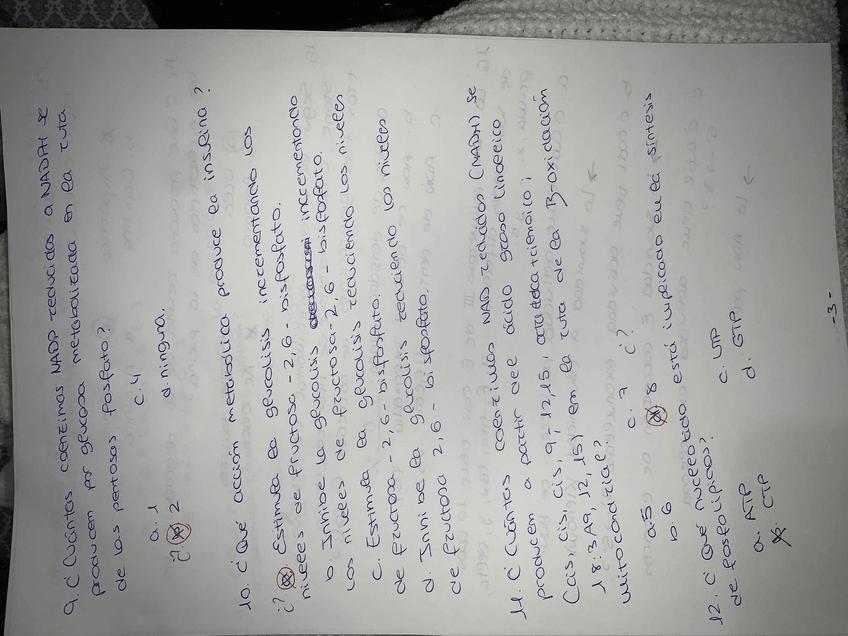 9. ¿Cuántos coenzimas NADP reducidos a NADPH se
producen por glucosa metabolizada en la ruta
de las pentosas fosfato?
a. 1
c. 4
¿? b. 2
d. ninguna.
10. ¿Qué acción metabólica produce la insulina?
¿? a. Estimula la glucolisis incrementando los
niveles de fructosa-2,6-bisfosfato.
b. Inhibe la glucolisis incrementando
los niveles de fructosa-2,6-bisfosfato.
c. Estimula la glucolisis reduciendo los niveles
de fructosa-2,6-bisfosfato.
d. Inhibe la glucolisis reduciendo los niveles
de fructosa 2,6-bisfosfato.
11. ¿Cuántos coenzimas NAD reducidos (NADH) se
producen a partir del ácido graso linoleico
(cis, cis, cis, 9-, 12, 15, octadecatrienoico;
18:3 Δ9, 12, 15) en la ruta de la B-oxidación
mitocondrial?
a. 5
c. 7 ¿?
b. 6
d. 8
12. ¿Qué nucleotido está implicado en la síntesis
de fosfolípidos?
a. ATP
c. UTP
b. CTP
d. GTP
-3-